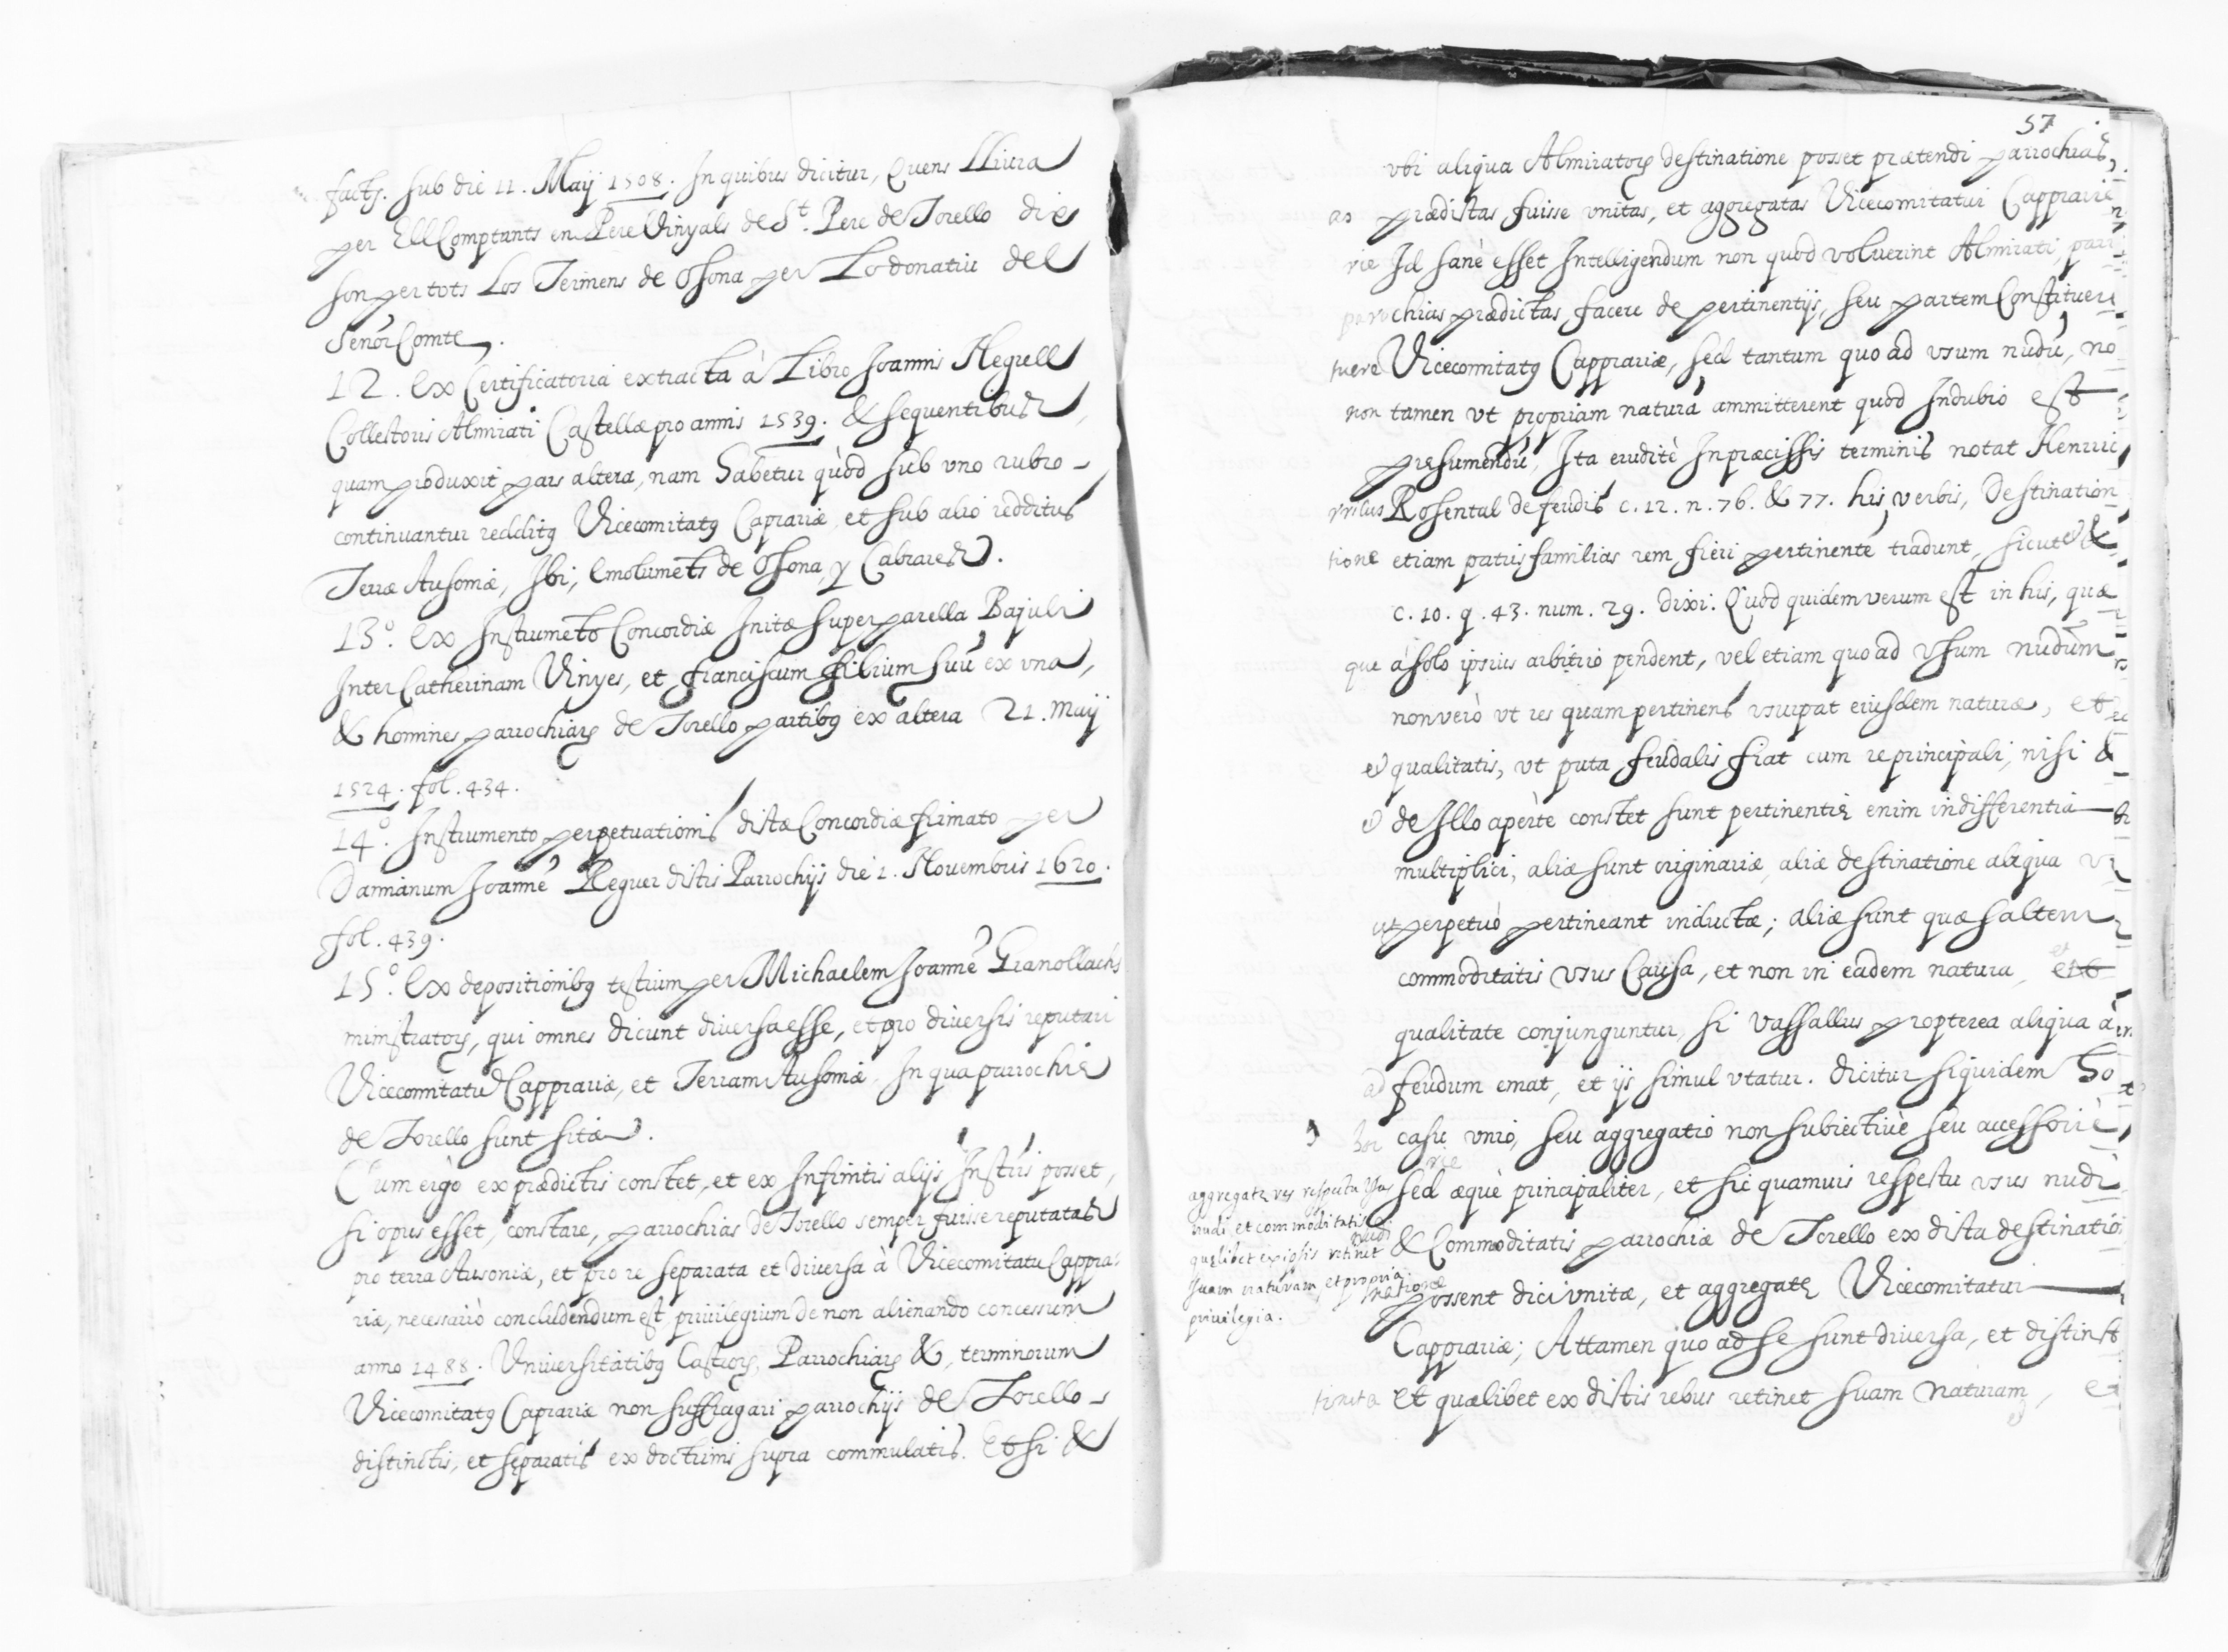 facts. sub die 11. Maÿ 1508. In quibus dicitur, Quens lliura
per Ell Comptants en Pere Vinyals de St. Pere de Torello dies
son per tots Los Termens de Osona per Lo donatiu del
Señor Comte.
12. Ex Certificatoria extracta à Libro Joannis Regull
Collectoris Almirati Castellæ pro annis 1539. & sequentibus
quam produxit pars altera, nam habetur quòd sub vno rubro-
continuantur redditꝰ Vicecomitatꝰ Caprariæ, et sub alio redditus
Terræ Ausoniæ, Ibi, Emolumets de Osona, y Cabrares.
13.º Ex Instrumeto Concordiæ Initæ super parella Bajuli
Inter Catherinam Vinyes, et franciscum filium suū ex vna,
& homines parrochiarꝫ de Torello partibꝰ ex altera 21. Maij
1524. fol. 434.
14.º Instrumento perpetuationis dictæ Concordiæ firmato per
Damianum Joannē Reguer dictis Parrochijs die 1. Nouembris 1620.
fol. 439.
15.º Ex depositionibꝰ testium per Michaelem Joannē Granollachs
ministratorꝫ, qui omnes dicunt diuersa esse, et pro diuersis reputari
Vicecomitatū Cappraviæ, et Terram Ausoniæ, In qua parrochiæ
de Torello sunt sitæ.
Cum ergò ex prædictis constet, et ex Infinitis alijs Instris posset,
si opus esset, constare, parrochias de Torello semper fuisse reputatas
pro terra Ausoniæ, et pro re separata et diuersa à Vicecomitatu Cappra-
riæ, necessariò concludendum est, priuilegium de non alienando concessum
anno 1488. Vniuersitatibꝰ Castrorꝫ, Parrochiarꝫ &, terminorum
Vicecomitatꝰ Caprariæ non suffragari parrochijs de Torello-
distinctis, et separatis ex doctrinis supra commulatis. Et si &
57
vbi aliqua Almiratorꝫ destinatione posset prætendi parrochias,
as prædictas fuisse vnitas, et aggregatas Vicecomitatui Capprarie
rie Id sanè esset Intelligendum non quod voluerint Almirati, parr
parochias prædictas facere de pertinentijs, seu partem Constituere
tuere Vicecomitatꝰ Capprariæ, sed tantum quo ad vsum nudū, no
non tamen vt propriam naturā ammitterent quod Indubio est
præsumendū, Ita eruditè In præcissis terminis notat Henric
rricus Rosental de feudis c. 12. n. 76. & 77. his verbis, Destination
tione etiam patris familias rem fieri pertinentē tradunt, sicut &
c. 10. q. 43. num. 29. dixi: Quod quidem verum est in his, quæ
que à solo ipsius arbitrio pendent, vel etiam quo ad vsum nudum
non verò vt res quam pertinens vsurpat eiusdem naturæ, et
et qualitatis, vt puta feudalis fiat cum re principali, nisi &
de Illo apertè constet sunt pertinentiæ enim in differentia
multiplici, aliæ sunt originariæ, aliæ destinatione aliqua
ut perpetuò pertineant inductæ; aliæ sunt quæ saltem
commoditatis vsus Causa, et non in eadem natura, et
qualitate conjunguntur, si vassallus propterea aliqua à
ad feudum emat, et ijs simul vtatur. dicitur siquidem ho
hoc casu vnio, seu aggregatio non subiectiuè seu accessoriè
rie
sed æquè principaliter, et sic quamuis respectu vsus nudi
& Commoditatis parrochiæ de Torello ex dicta destinatio
possent dici vnitæ, et aggregatæ Vicecomitatui
Capprariæ; Attamen quo ad se sunt diuersa, et distinct
tincta et quælibet ex dictis rebus retinet suam naturam, e
aggregatæ res respectu vsus
nudi et commoditatis
quælibet ex ipsis retinet
nudi
suam naturam, et propria
natione
priuilegia.